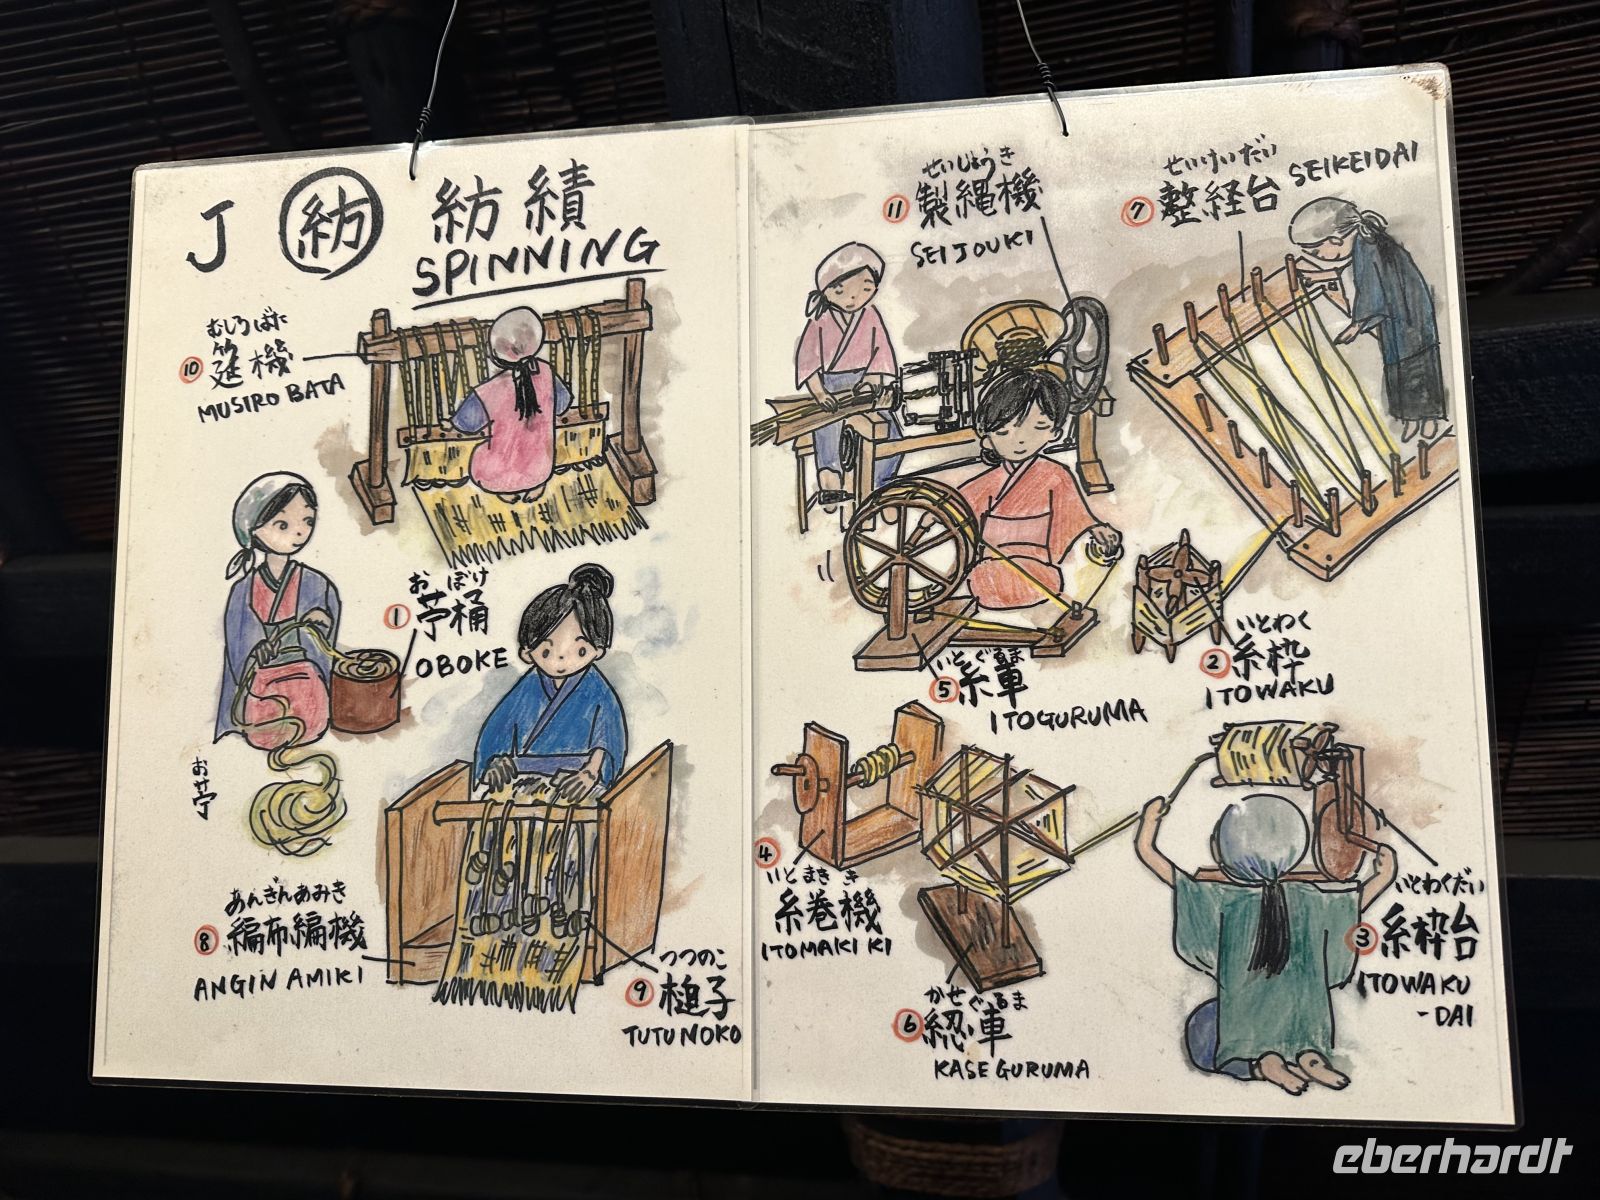 J 紡 紡績
SPINNING
むしろばた
⑩ 筵機
MUSIRO BATA
おぼけ
① 苧桶
OBOKE
お苧
あんぎんあみき
⑧ 編布編機
ANGIN AMIKI
つつのこ
⑨ 槌子
TUTUNOKO
せいじょうき
⑪ 製縄機
SEIJOUKI
せいけいだい
⑦ 整経台 SEIKEIDAI
いとわく
② 糸枠
ITOWAKU
いとぐるま
⑤ 糸車
ITOGURUMA
④
いとまきき
糸巻機
ITOMAKI KI
いとわくだい
③ 糸枠台
ITOWAKU
-DAI
かせぐるま
⑥ 綛車
KASEGURUMA
eberhardt